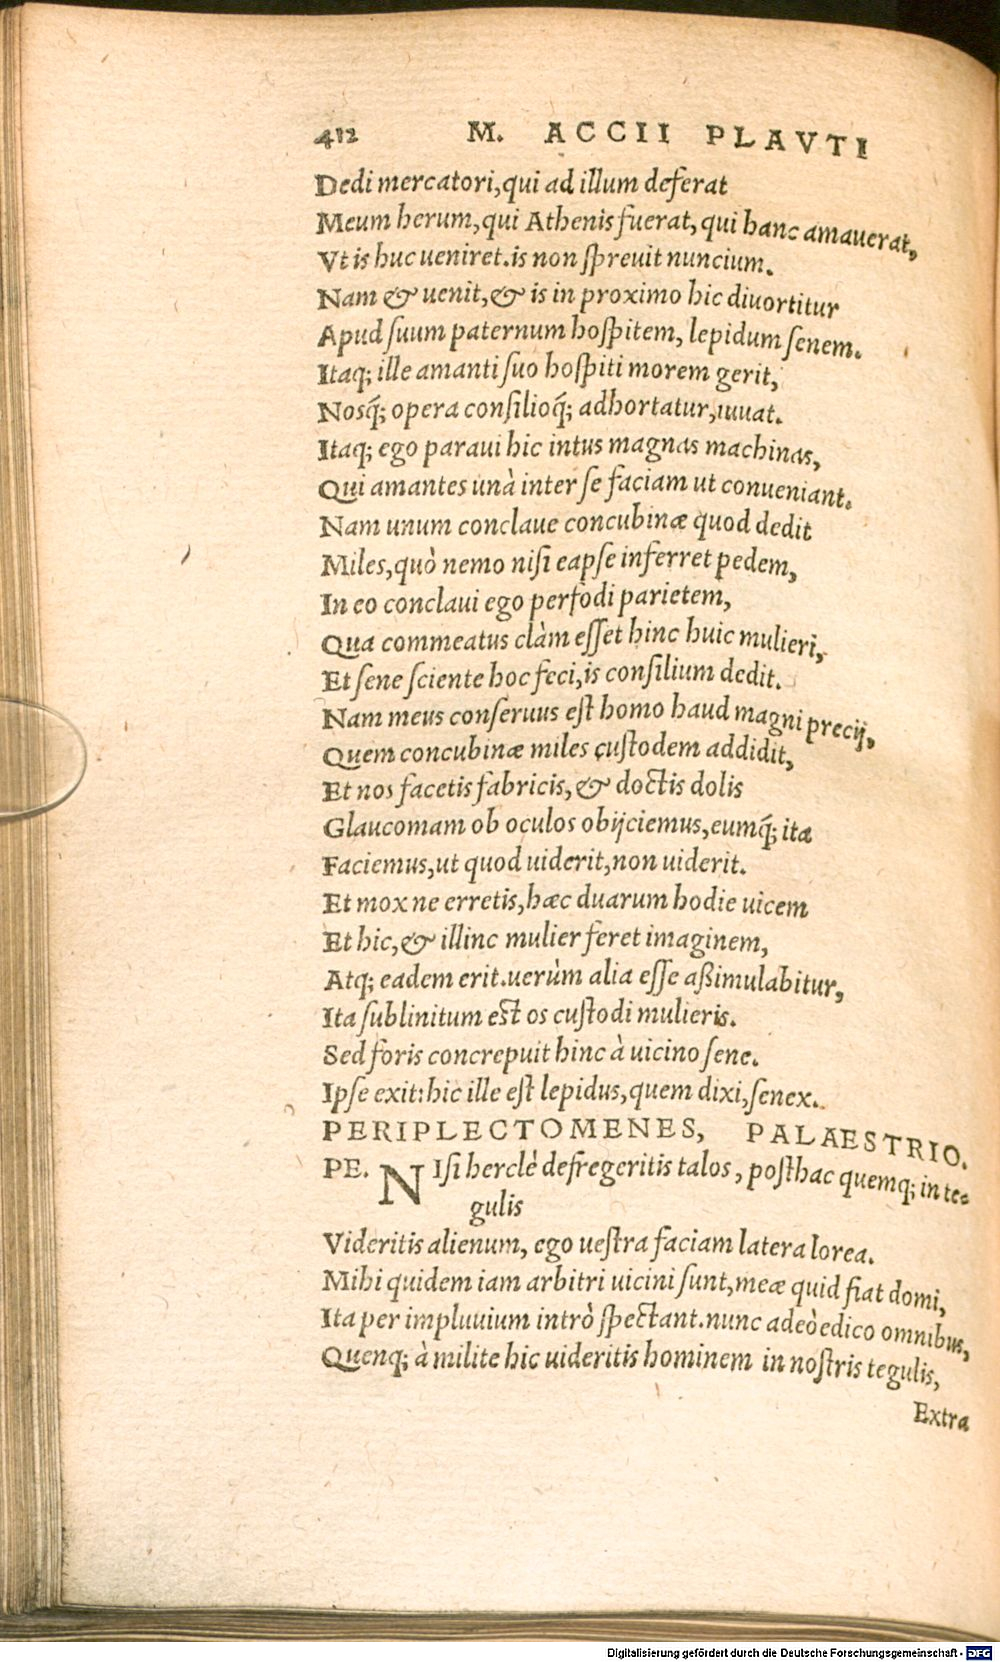 412 M. ACCII PLAVTI
Dedi mercatori, qui ad illum deferat
Meum herum, qui Athenis fuerat, qui hanc amauerat,
Vt is huc ueniret. is non spreuit nuncium.
Nam & uenit, & is in proximo hic diuortitur
Apud suum paternum hospitem, lepidum senem.
Itaq; ille amanti suo hospiti morem gerit,
Nosq́; opera consilioq́; adhortatur, iuuat.
Itaq; ego paraui hic intus magnas machinas,
Qui amantes unà inter se faciam ut conueniant.
Nam unum conclaue concubinæ quod dedit
Miles, quò nemo nisi eapse inferret pedem,
In eo conclaui ego perfodi parietem,
Qua commeatus clàm esset hinc huic mulieri,
Et sene sciente hoc feci, is consilium dedit.
Nam meus conseruus est homo haud magni precij,
Quem concubinæ miles custodem addidit,
Et nos facetis fabricis, & doctis dolis
Glaucomam ob oculos obijciemus, eumq́; ita
Faciemus, ut quod uiderit, non uiderit.
Et mox ne erretis, hæc duarum hodie uicem
Et hic, & illinc mulier feret imaginem,
Atq; eadem erit. uerùm alia esse aßimulabitur,
Ita sublinitum est os custodi mulieris.
Sed foris concrepuit hinc à uicino sene.
Ipse exit: hic ille est lepidus, quem dixi, senex.
PERIPLECTOMENES, PALAESTRIO.
PE. NIsi herclè defregeritis talos, posthac quemq; in te-
gulis
Videritis alienum, ego uestra faciam latera lorea.
Mihi quidem iam arbitri uicini sunt, meæ quid fiat domi,
Ita per impluuium intrò spectant. nunc adeò edico omnibus,
Quenq; à milite hic uideritis hominem in nostris tegulis,
Extra
Digitalisierung gefördert durch die Deutsche Forschungsgemeinschaft - DFG